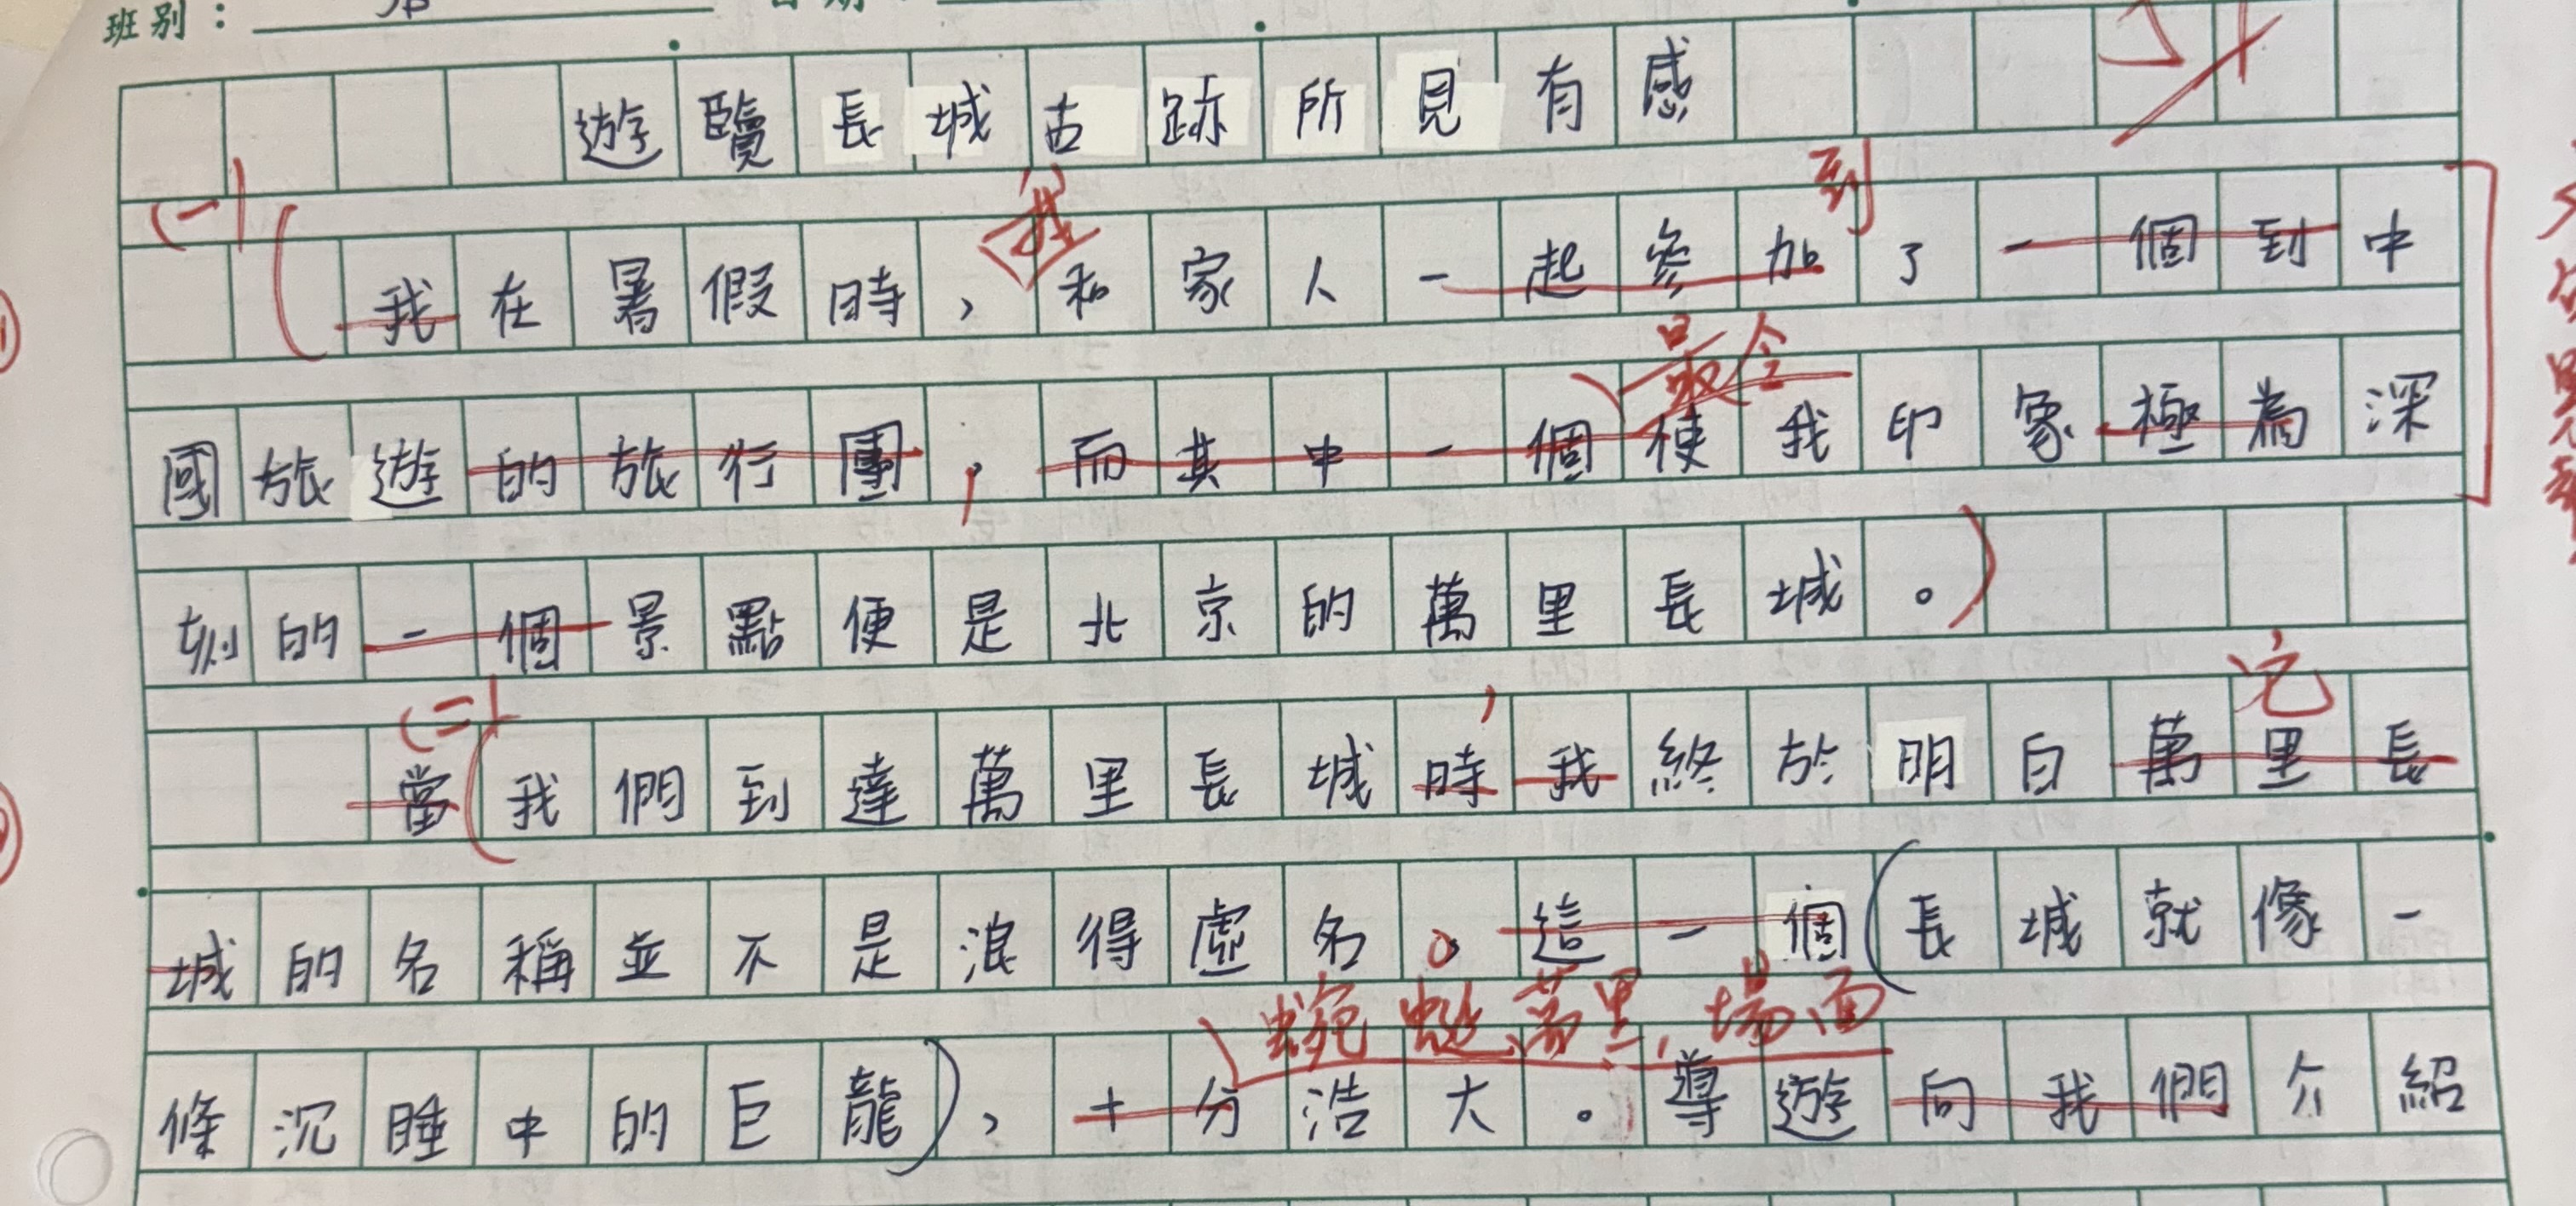 班別：
遊覽長城古跡所見有感
(一)
我 到
我在暑假時，和家人一起參加了一個到中
最令
國旅遊的旅行團，而其中一個使我印象極為深
刻的一個景點便是北京的萬里長城。
(二) ， 它
當(我們到達萬里長城時我終於明白萬里長
城的名稱並不是浪得虛名。這一個(長城就像一
蜿蜒萬里，場面
條沉睡中的巨龍)，十分浩大。導遊向我們介紹